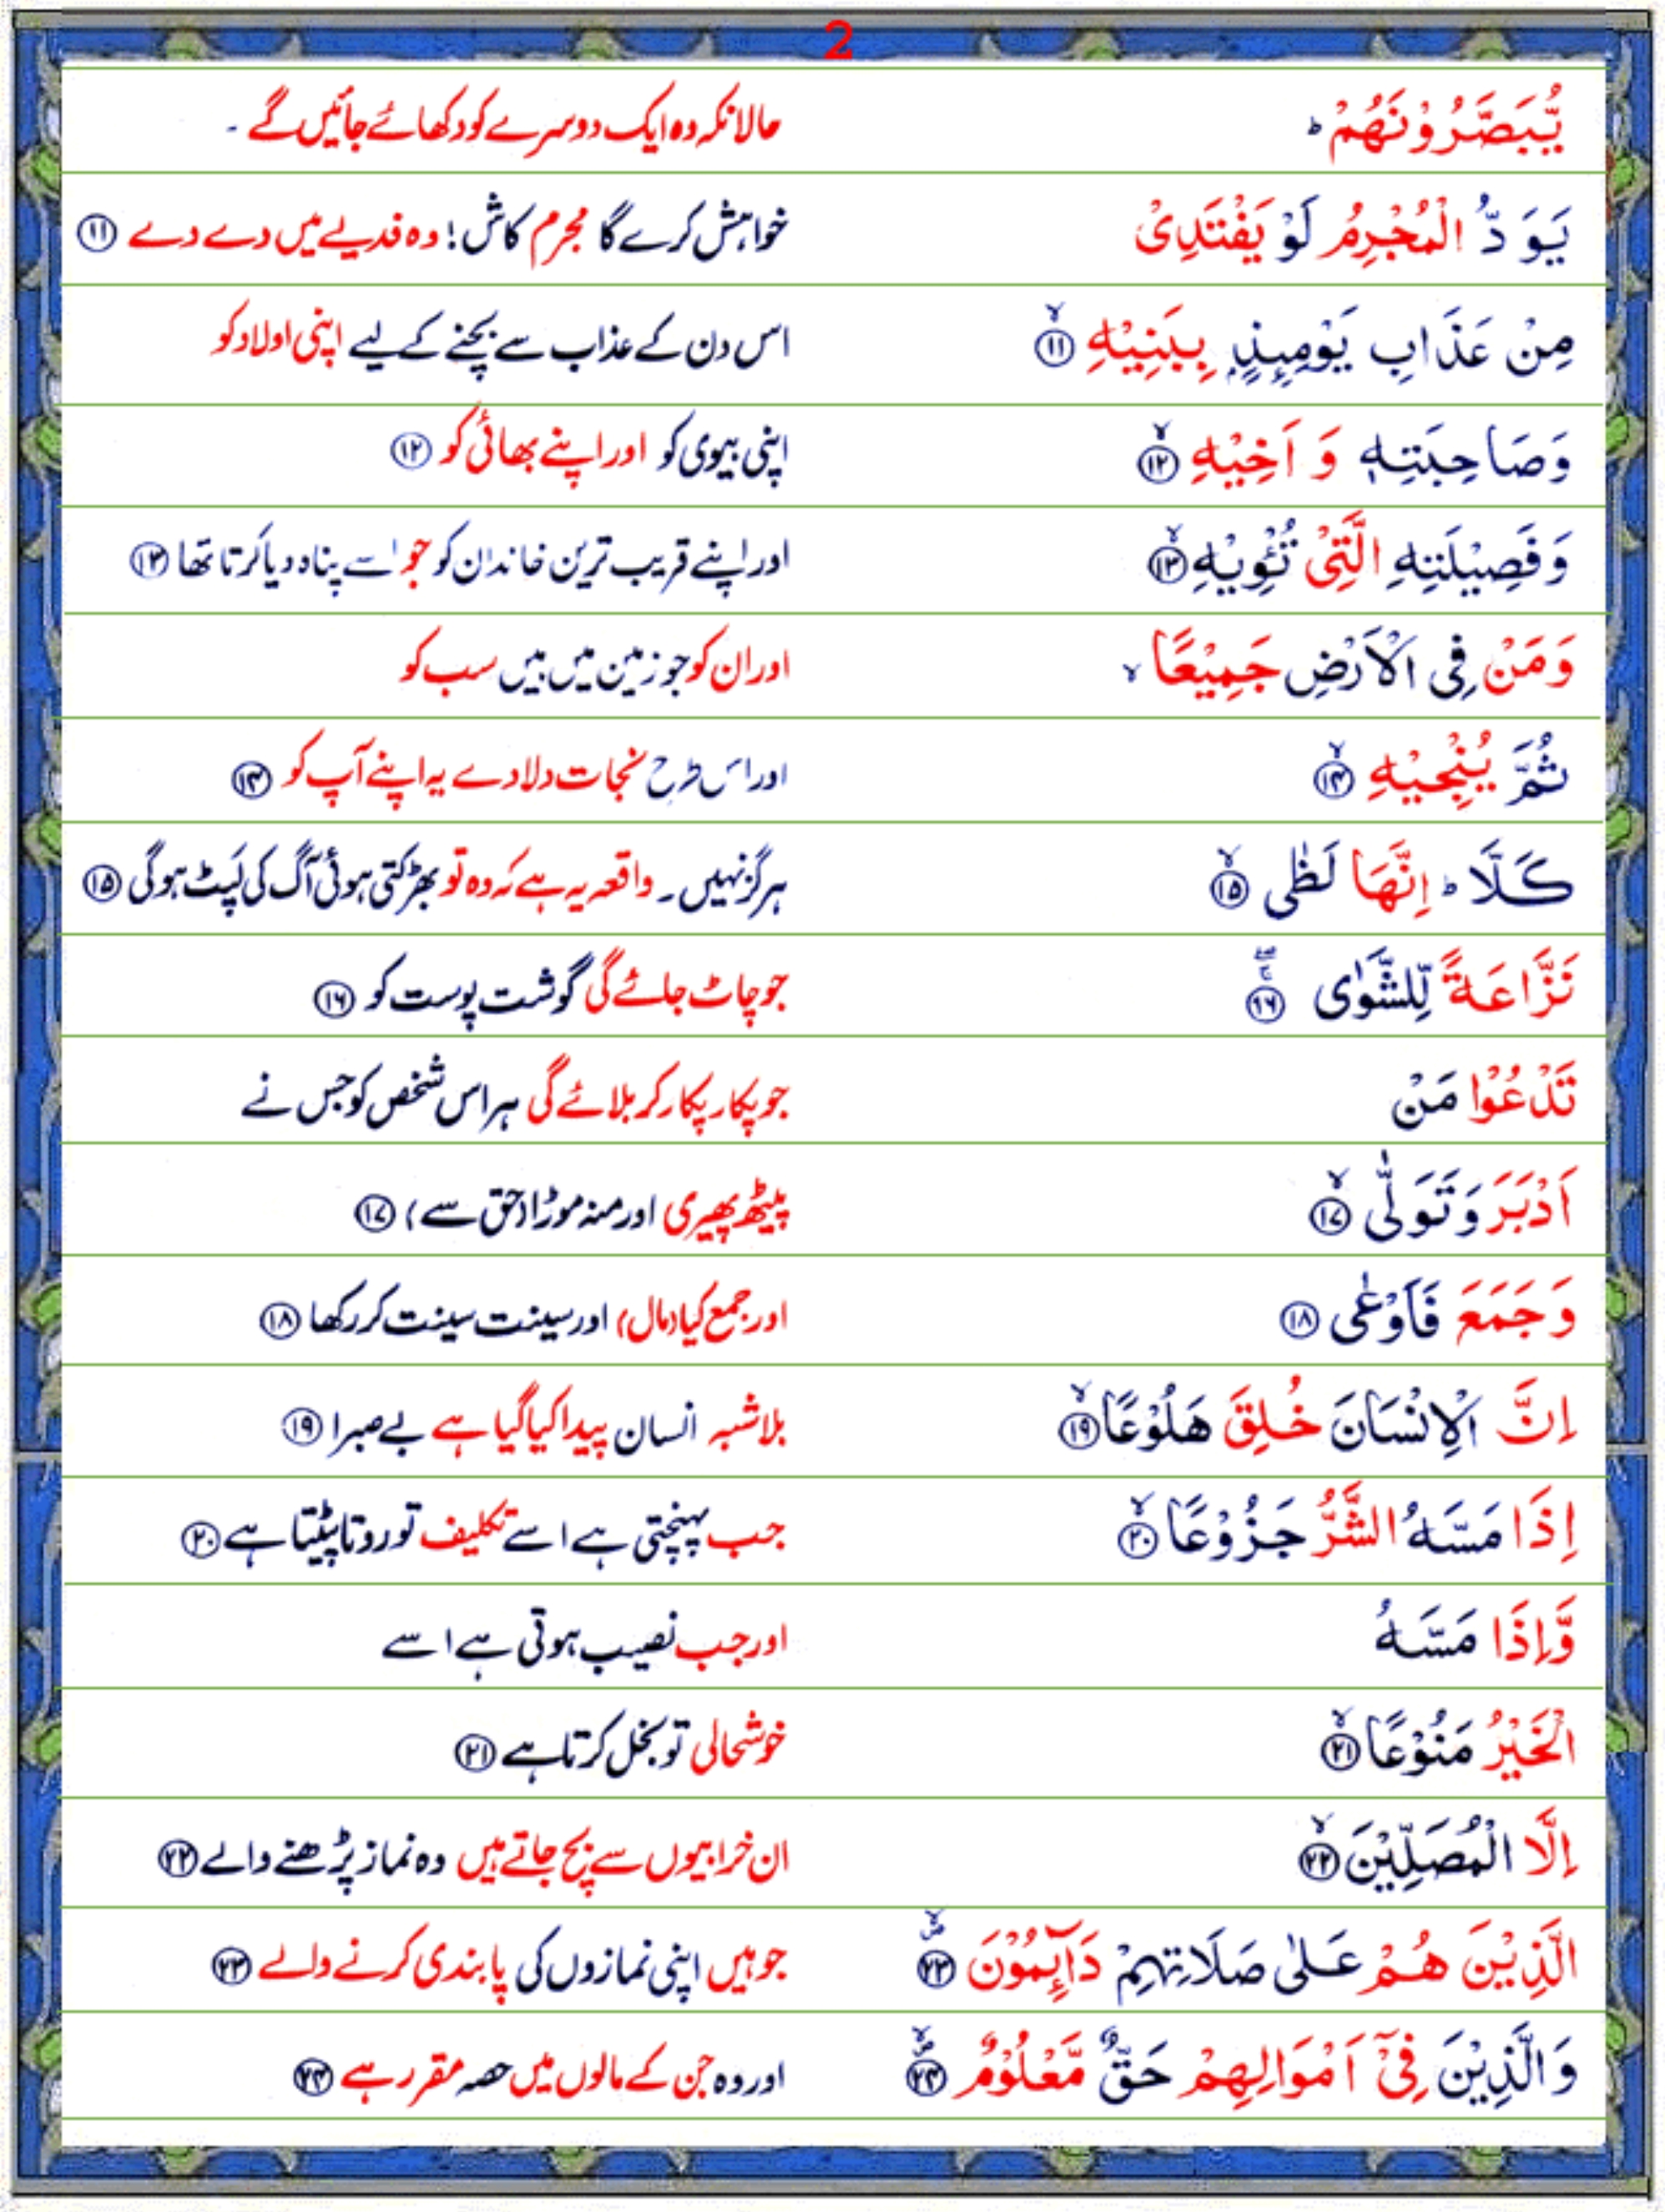 2
يُّبَصَّرُوْنَهُمْ ؕ حالانکہ وہ ایک دوسرے کو دکھائے جائیں گے ۔
يَوَدُّ الْمُجْرِمُ لَوْ يَفْتَدِىْ خواہش کرے گا مجرم کاش! وہ فدیے میں دے دے ⑪
مِنْ عَذَابِ يَوْمِٮِٕذٍۢ بِبَنِيْهِ ۙ‏ ⑪ اس دن کے عذاب سے بچنے کے لیے اپنی اولاد کو
وَصَاحِبَتِهٖ وَاَخِيْهِ ۙ‏ ⑫ اپنی بیوی کو اور اپنے بھائی کو ⑫
وَفَصِيْلَتِهِ الَّتِىْ تُـــْٔوِيْهِ ۙ‏ ⑬ اور اپنے قریب ترین خاندان کو جو اسے پناہ دیا کرتا تھا ⑬
وَمَنْ فِى الْاَرْضِ جَمِيْعًا ۙ اور ان کو جو زمین میں ہیں سب کو
ثُمَّ يُنْجِيْهِ ۙ‏ ⑭ اور اس طرح نجات دلادے یہ اپنے آپ کو ⑭
كَلَّا ؕ اِنَّهَا لَظٰى ۙ‏ ⑮ ہرگز نہیں ۔ واقعہ یہ ہے کہ وہ تو بھڑکتی ہوئی آگ کی لپٹ ہوگی ⑮
نَزَّاعَةً لِّلشَّوٰى ۖۚ ⑯ جو چاٹ جائے گی گوشت پوست کو ⑯
تَدْعُوْا مَنْ جو پکار پکار کر بلائے گی ہر اس شخص کو جس نے
اَدْبَرَ وَتَوَلّٰى ۙ‏ ⑰ پیٹھ پھیری اور منہ موڑا (حق سے) ⑰
وَجَمَعَ فَاَوْعٰى ⑱ اور جمع کیا (مال) اور سینت سینت کر رکھا ⑱
اِنَّ الْاِنْسَانَ خُلِقَ هَلُوْعًا ۙ‏ ⑲ بلاشبہ انسان پیدا کیا گیا ہے بے صبرا ⑲
اِذَا مَسَّهُ الشَّرُّ جَزُوْعًا ۙ‏ ⑳ جب پہنچتی ہے اسے تکلیف تو روتا پیٹتا ہے ⑳
وَّاِذَا مَسَّهُ اور جب نصیب ہوتی ہے اسے
الْخَيْرُ مَنُوْعًا ۙ‏ ㉑ خوشحالی تو بخل کرتا ہے ㉑
اِلَّا الْمُصَلِّيْنَ ۙ‏ ㉒ ان خرابیوں سے بچ جاتے ہیں وہ نماز پڑھنے والے ㉒
الَّذِيْنَ هُمْ عَلٰى صَلَاتِهِمْ دَآٮِٕمُوْنَ ۙ‏ ㉓ جو ہیں اپنی نمازوں کی پابندی کرنے والے ㉓
وَالَّذِيْنَ فِىْۤ اَمْوَالِهِمْ حَقٌّ مَّعْلُوْمٌ ۙ‏ ㉔ اور وہ جن کے مالوں میں حصہ مقرر ہے ㉔